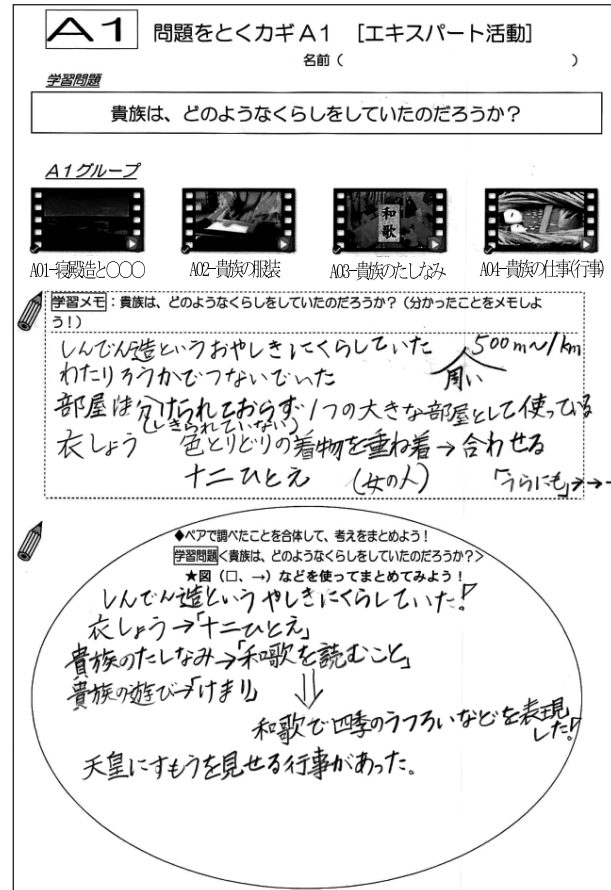 A1 問題をとくカギA1 [エキスパート活動]
名前( )
学習問題
貴族は、どのようなくらしをしていたのだろうか?
A1グループ
和歌
A01-寝殿造と〇〇〇 A02-貴族の服装 A03-貴族のたしなみ A04-貴族の仕事(行事)
学習メモ:貴族は、どのようなくらしをしていたのだろうか?(分かったことをメモしよ
う!)
しんでん造というおやしきにくらしていた 500m~1km
わたりろうかでつないでいた 周い
部屋は分けられておらず1つの大きな部屋として使っている
(しきられていない)
衣しょう 色とりどりの着物を重ね着→合わせる
十二ひとえ (女の人) 「うらにも」→→-
◆ペアで調べたことを合体して、考えをまとめよう!
学習問題<貴族は、どのようなくらしをしていたのだろうか?>
★図(□、→)などを使ってまとめてみよう!
しんでん造というやしきにくらしていた!
衣しょう→「十二ひとえ」
貴族のたしなみ→「和歌を読むこと」
貴族の遊び→「けまり」
⇓
和歌で四季のうつろいなどを表現
した!
天皇にすもうを見せる行事があった。